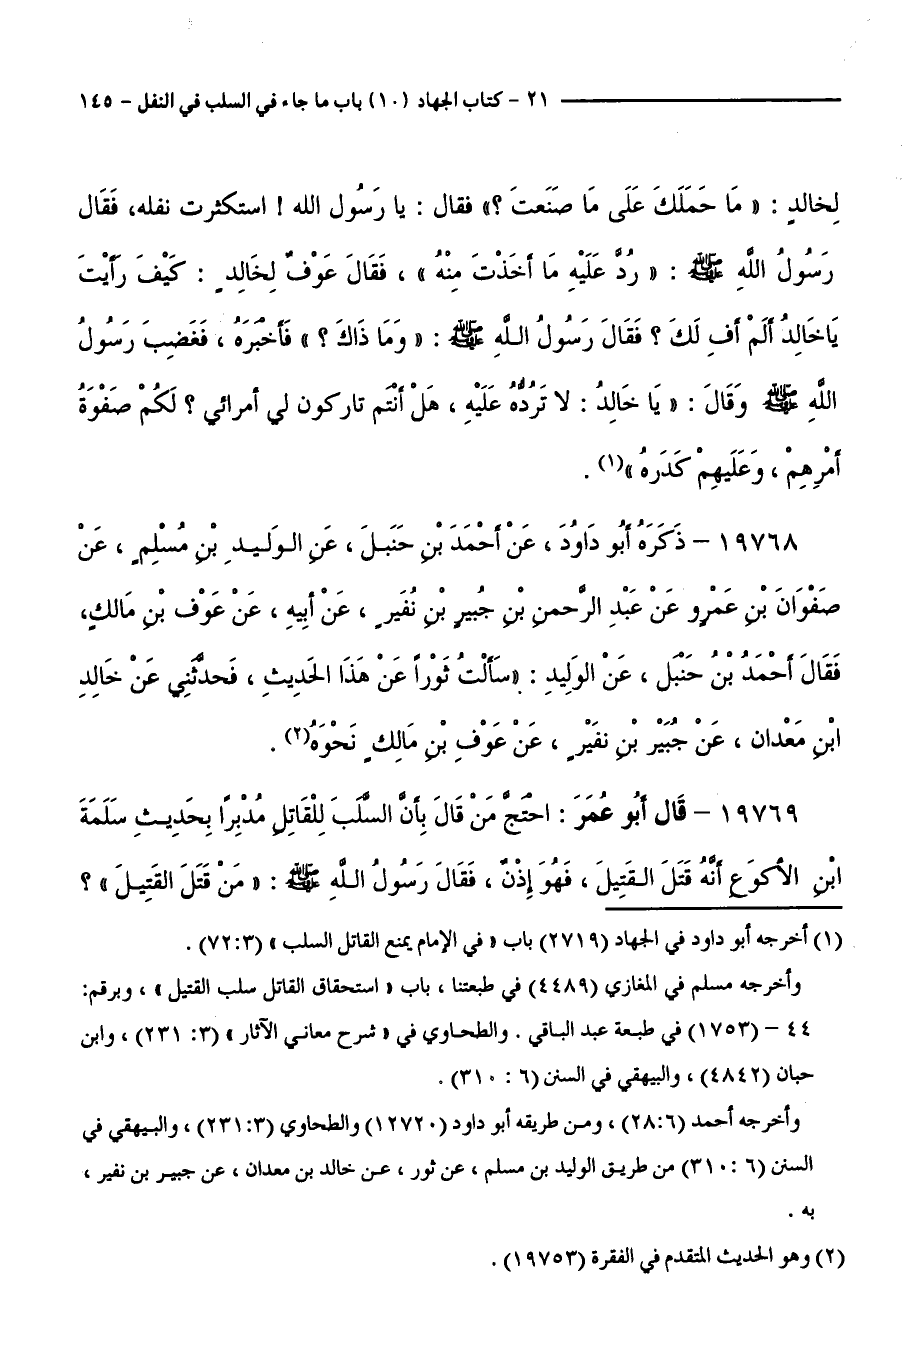 ٢١ - كتاب الجهاد (١٠) باب ما جاء في السلب في النفل - ١٤٥
لِخالدٍ : « مَا حَمَلَكَ عَلَى مَا صَنَعتَ ؟» فقال : يا رَسُول الله ! استكثرت نفله، فَقَال
رَسُولُ اللَّهِ ﷺ : « رُدَّ عَلَيْهِ مَا أخَذْتَ مِنْهُ » ، فَقَالَ عَوْفٌ لِخَالِدٍ : كَيْفَ رَأَيْتَ
يَاخَالِدُ أَلَمْ أَفِ لَكَ ؟ فَقَالَ رَسُولُ اللَّهِ ﷺ : « وَمَا ذَاكَ ؟ » فَأَخْبَرَهُ ، فَغَضِبَ رَسُولُ
اللَّهِ ﷺ وَقَالَ : « يَا خَالِدُ : لا تَرُدُّهُ عَلَيْهِ ، هَلْ أنْتَم تاركون لي أمرائي ؟ لَكُمْ صَفْوَةُ
أَمْرِهِمْ ، وَعَلَيهِمْ كَدَرَهُ »(١) .
١٩٧٦٨ - ذَكَرَهُ أَبُو دَاوُدَ ، عَنْ أَحْمَدَ بْنِ حَنَبَلَ ، عَنِ الوَلِيدِ بْنِ مُسْلِمٍ ، عَنْ
صَفْوَانَ بْنِ عَمْرٍو عَنْ عَبْدِ الرَّحمنِ بْنِ جُبيرِ بْنِ نُفَيرٍ ، عَنْ أَبِيهِ ، عَنْ عَوْفِ بْنِ مَالكٍ،
فَقَالَ أَحْمَدُ بْنُ حَنْبَل ، عَنْ الوَلِيدِ : «سَأَلْتُ ثَوْراً عَنْ هَذَا الحَديثِ ، فَحدثَّنِي عَنْ خَالِدِ
ابْنِ مَعْدان ، عَنْ جُبَيْرِ بْنِ نفَيْرٍ ، عَنْ عَوْفِ بْنِ مَالِكٍ نَحْوَهُ(٢) .
١٩٧٦٩ - قَال أَبُو عُمَرَ : احتَجَّ مَنْ قَالَ بِأَنَّ السَّلَبَ لِلْقَاتِلِ مُدْبِرًا بِحَدِيثِ سَلَمَةَ
ابْنِ الأكوَعِ أَنَّهُ قَتَلَ القَتِيلَ ، فَهُوَ إِذْنٌ ، فَقَالَ رَسُولُ اللَّهِ ﷺ : « مَنْ قَتَلَ القَتِيلَ » ؟
(١) أخرجه أبو داود في الجهاد (٢٧١٩) باب « في الإمام يمنع القاتل السلب » (٧٢:٣) .
وأخرجه مسلم في المغازي (٤٤٨٩) في طبعتنا ، باب « استحقاق القاتل سلب القتيل » ، وبرقم:
٤٤ - (١٧٥٣) في طبعة عبد الباقي . والطحاوي في « شرح معاني الآثار » (٣: ٢٣١) ، وابن
حبان (٤٨٤٢) ، والبيهقي في السنن (٦ : ٣١٠) .
وأخرجه أحمد (٢٨:٦) ، ومن طريقه أبو داود (١٢٧٢٠) والطحاوي (٢٣١:٣) ، والبيهقي في
السنن (٦ :٣١٠) من طريق الوليد بن مسلم ، عن ثور ، عن خالد بن معدان ، عن جبير بن نفير ،
به .
(٢) وهو الحديث المتقدم في الفقرة (١٩٧٥٣) .